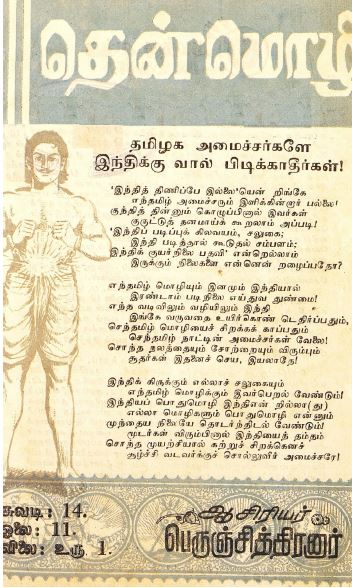 தென்மொழி
தமிழக அமைச்சர்களே
இந்திக்கு வால் பிடிக்காதீர்கள்!
'இந்தித் திணிப்பே இல்லை'யென் றிங்கே
எந்தமிழ் அமைச்சரும் இளிக்கின்றார் பல்லை!
குந்தித் தின்னும் கொழுப்பினால் இவர்கள்
குருட்டுத் தனமாய்க் கூறலாம் அப்படி!
'இந்திப் படிப்புக் கிலவயம், சலுகை;
இந்தி படித்தால் கூடுதல் சம்பளம்;
இந்திக் குயர்நிலை பதவி' என்றெல்லாம்
இருக்கும் நிலைகளை என்னென் றழைப்பதோ?
எந்தமிழ் மொழியும் இனமும் இந்தியால்
இரண்டாம் படிநிலை எய்துவ துண்மை!
எந்த வடிவிலும் வழியிலும் இந்தி
இங்கே வருவதை உயிர்கொண் டெதிர்ப்பதும்,
செந்தமிழ் மொழியைச் சிறக்கக் காப்பதும்
செந்தமிழ் நாட்டின் அமைச்சர்கள் வேலை!
சொந்த நலத்தையும் சோற்றையும் விரும்பும்
சூதர்கள் இதனைச் செய, இயலாதே!
இந்திக் கிருக்கும் எல்லாச் சலுகையும்
எந்தமிழ் மொழிக்கும் இவர்பெறல் வேண்டும்!
இந்தியப் பொதுமொழி இந்தியென் றில்லா(து)
எல்லா மொழிகளும் பொதுமொழி என்னும்
முந்தைய நிலையே தொடர்ந்திடல் வேண்டும்!
மூடர்கள் விரும்பினால் இந்தியைத் தம்தம்
சொந்த முயற்சியால் கற்றுச் சிறக்கெனச்
சூழ்ச்சி வடவர்க்குச் சொல்லுவீர் அமைச்சரே!
சுவடி: 14.
ஓலை: 11.
விலை: உரு. 1.
ஆசிரியர்
பெருஞ்சித்திரனார்